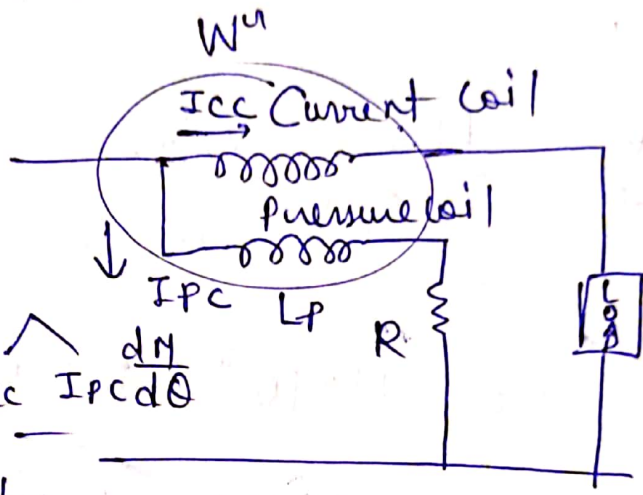 W
Icc Current Coil
Pressure Coil
IPC LP
R
LOAD
c IPC dM
dθ